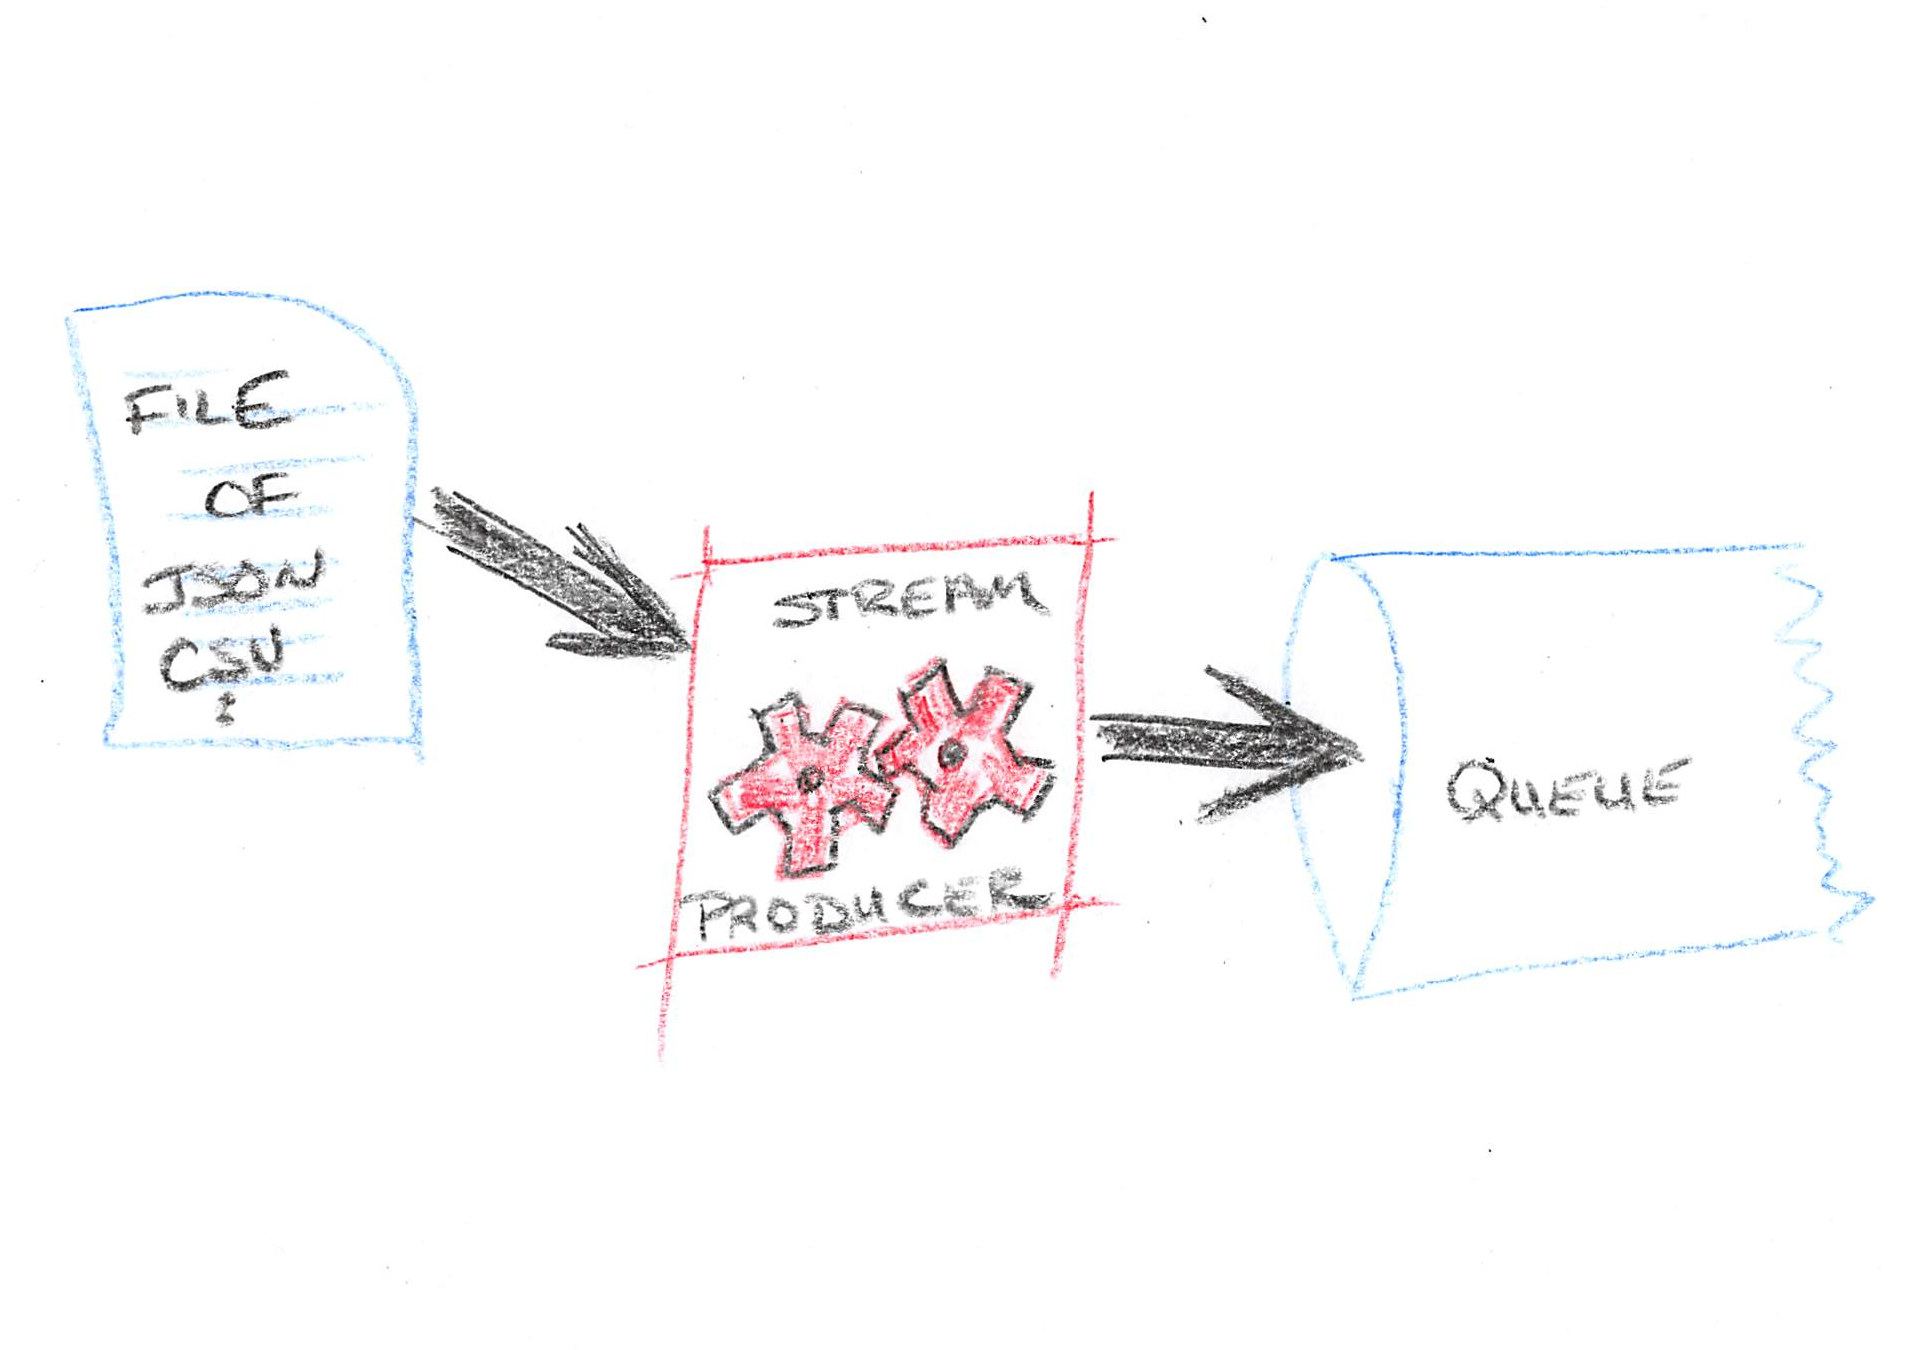 FILE
OF
JSON
CSV
⋮
STREAM
PRODUCER
QUEUE